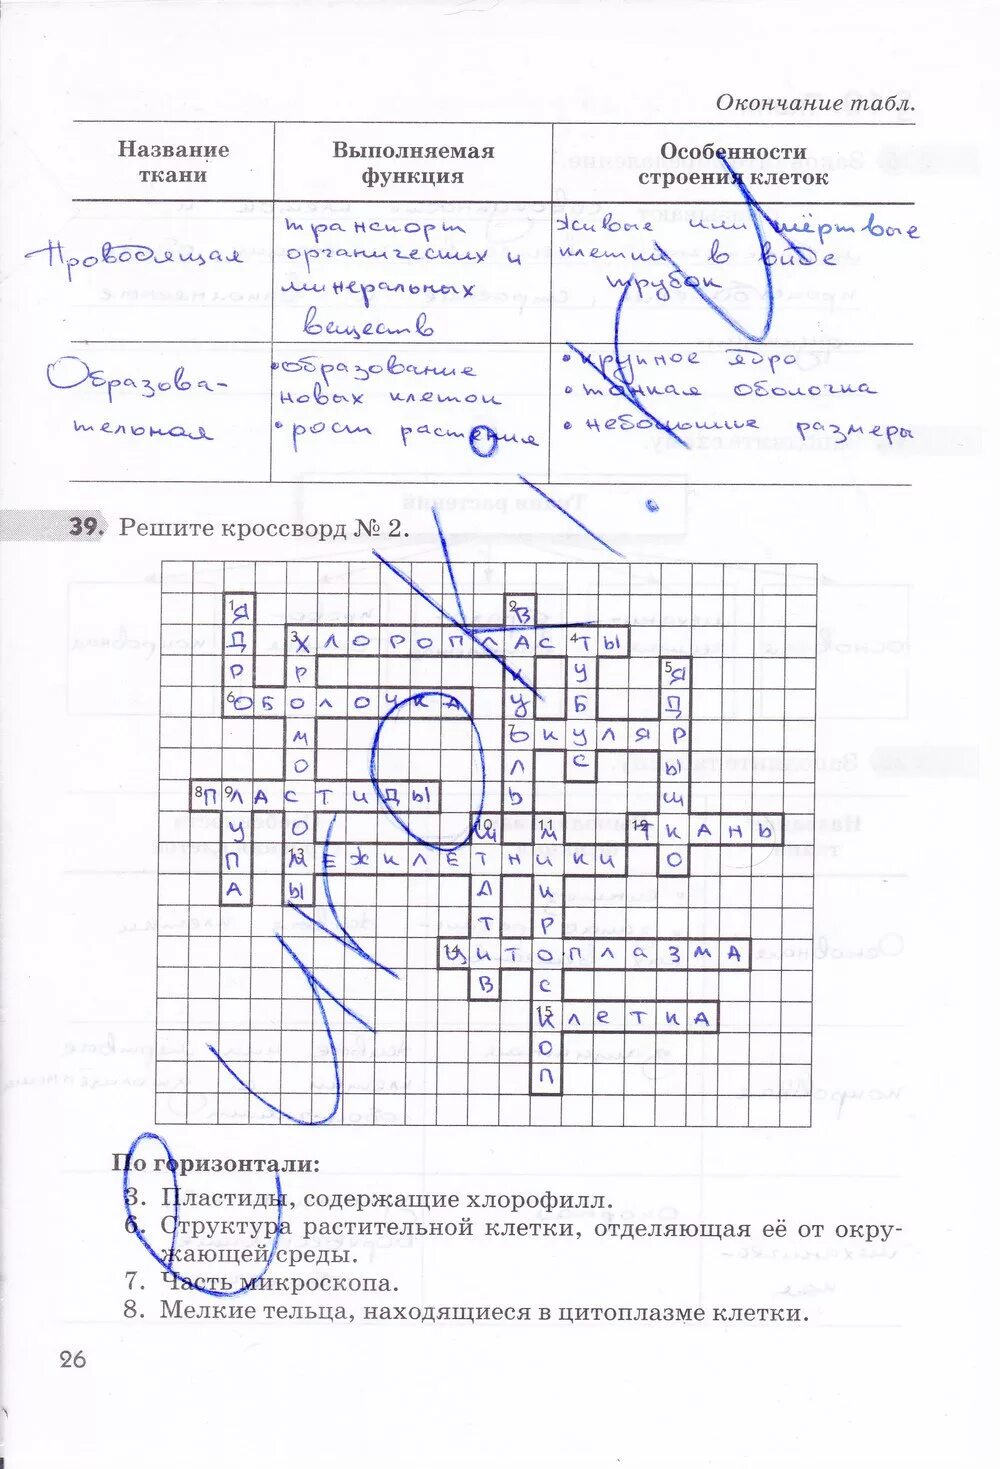 Окончание табл.
Название ткани
Выполняемая функция
Особенности строения клеток
Проводящая
транспорт
органических и
минеральных
веществ
живые или мёртвые
клетки в виде
трубок
Образова-
тельная
• образование
новых клеток
• рост растения
• крупное ядро
• тонкая оболочка
• небольшие размеры
39. Решите кроссворд № 2.
1 ЯДРО
2 ВАКУОЛЬ
3 ХЛОРОПЛАСТЫ
3 ХРОМОСОМЫ
4 ТУБУС
5 ЯДРЫШКО
6 ОБОЛОЧКА
7 ОКУЛЯР
8 ПЛАСТИДЫ
9 ЛУПА
10 ШТАТИВ
11 МИКРОСКОП
12 ТКАНЬ
13 МЕЖКЛЕТНИКИ
14 ЦИТОПЛАЗМА
15 КЛЕТКА
По горизонтали:
3. Пластиды, содержащие хлорофилл.
6. Структура растительной клетки, отделяющая её от окру-
жающей среды.
7. Часть микроскопа.
8. Мелкие тельца, находящиеся в цитоплазме клетки.
26